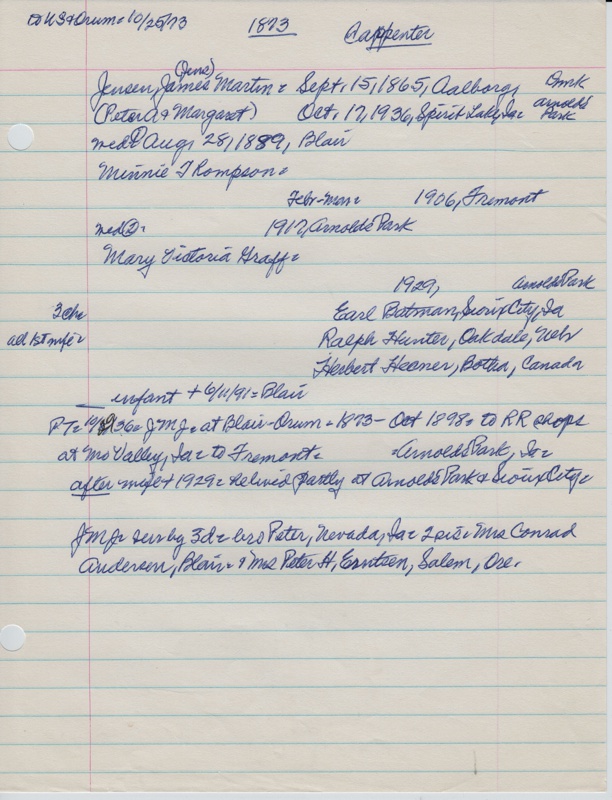 to US & Orum = 10/25/73 1873 Carpenter
(Jens)
Jensen, James Martin = Sept. 15, 1865, Aalborg, Dmk
(Peter & Margaret) Oct. 17, 1936, Spirit Lake, Ia = Arnolds Park
med ① Aug 28, 1889, Blair
Minnie Thompson =
Febr-Mar = 1906, Fremont
med ② = 1917, Arnolds Park
Mary Victoria Graff =
1929, Arnolds Park
3 ch = Earl Botman, Sioux City, Ia
all 1st wife = Ralph Hunter, Oakdale, Nebr
Herbert Hecner, Botha, Canada
infant + 6/11/91 = Blair
PT = 36 = JMJ = at Blair-Orum = 1873 - Oct 1898 = to RR shops
at Mo Valley, Ia = to Fremont = = Arnolds Park, Ia =
after wife + 1929 = he lived partly at Arnolds Park & Sioux City =
JMJ = surv by 3d = bro Peter, Nevada, Ia = 2 sis = Mrs Conrad
Andersen, Blair = & Mrs Peter H, Erntzen, Salem, Ore.